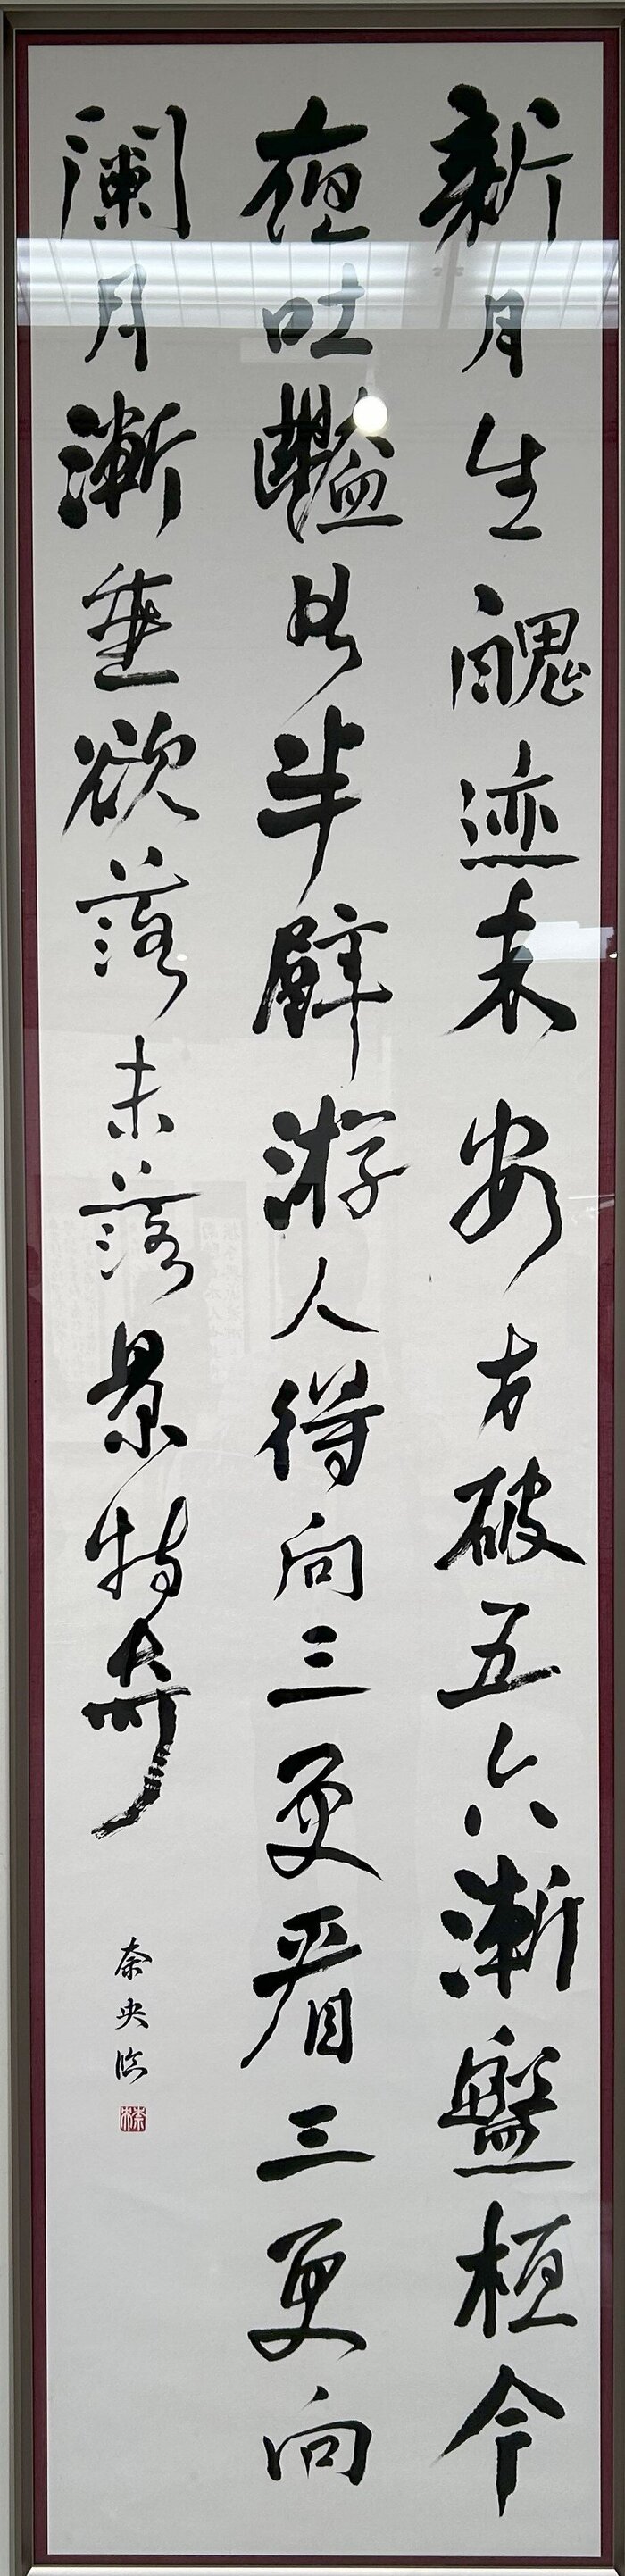 新月生魄迹未安才破五六漸盤桓今
夜吐豔如半璧游人得向三更看三更向
闌月漸垂欲落未落景特奇
奈央臨